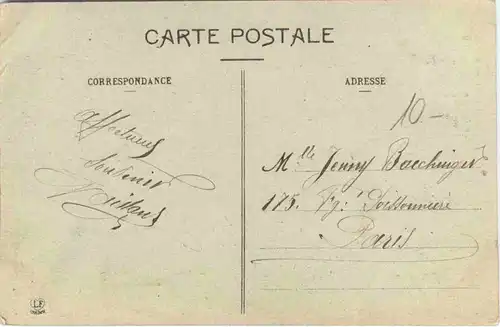 CARTE POSTALE
CORRESPONDANCE
ADRESSE
10.-
Affectueux
Souvenir
Mlle Jenny Bacchinger
175. Fg. Poissonnière
Paris
LF